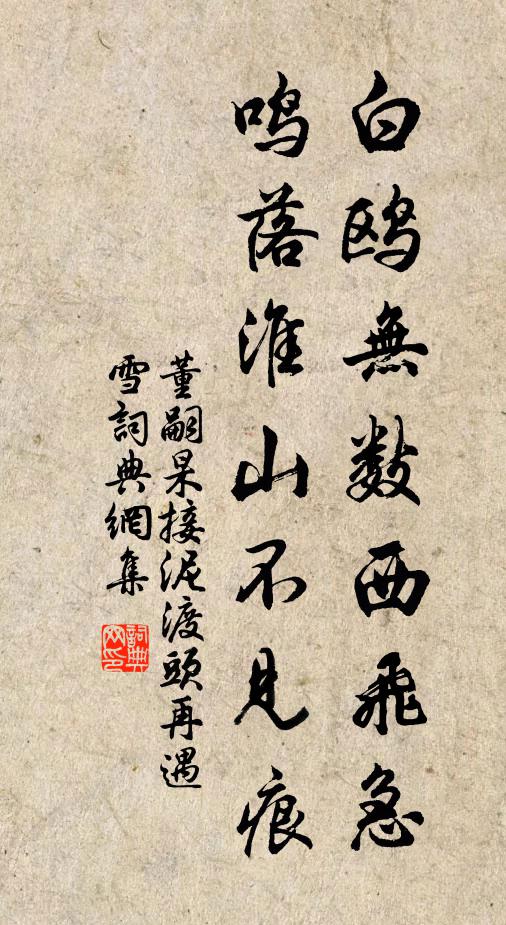 白鷗無數西飛急
鳴落淮山不見痕
董嗣杲接泥渡頭再遇
雪詞典網集
詞典网印